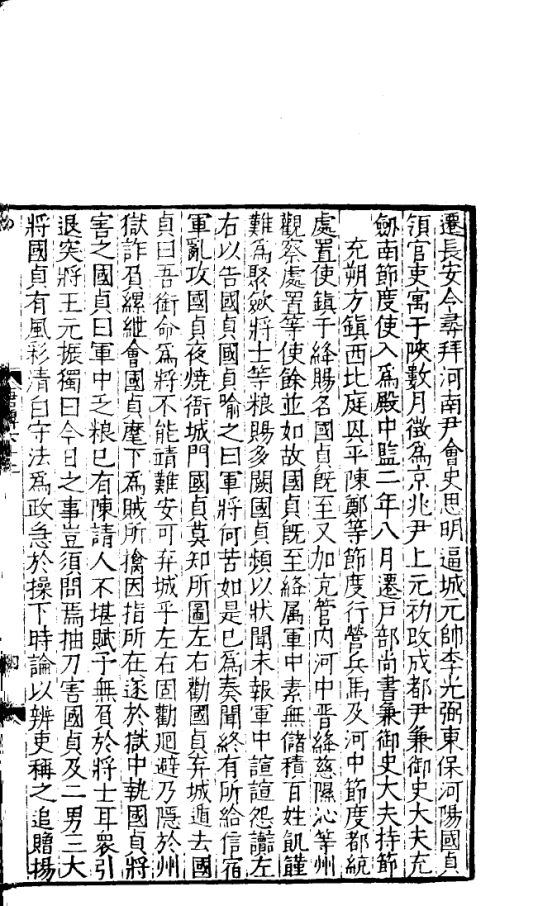 遷長安令尋拜河南尹會史思明逼城元帥李光弼東保河陽國貞
領官吏寓于陝數月徵爲京兆尹上元初改成都尹兼御史大夫充
劒南節度使入爲殿中監二年八月遷戶部尚書兼御史大夫持節
充朔方鎮西北庭興平陳鄭等節度行營兵馬及河中節度都統
處置使鎮于絳賜名國貞旣至又加充管内河中晋絳慈隰沁等州
觀察處置等使餘並如故國貞旣至絳属軍中素無儲積百姓飢饉
難爲聚歛將士等粮賜多闕國貞頻以狀聞未報軍中諠諠怨讟左
右以告國貞國貞喻之曰軍將何苦如是已爲奏聞終有所給信宿
軍亂攻國貞夜燒衙城門國貞莫知所圖左右勸國貞弃城遁去國
貞曰吾銜命爲將不能靖難安可弃城乎左右固勸迴避乃隱於州
獄詐負縲紲會國貞麾下爲賊所擒因指所在遂於獄中執國貞將
害之國貞曰軍中乏粮已有陳請人不堪賦予無負於將士耳衆引
退突將王元振獨曰今日之事豈須問焉抽刀害國貞及二男三大
將國貞有風彩清白守法爲政急於操下時論以辨吏稱之追贈揚